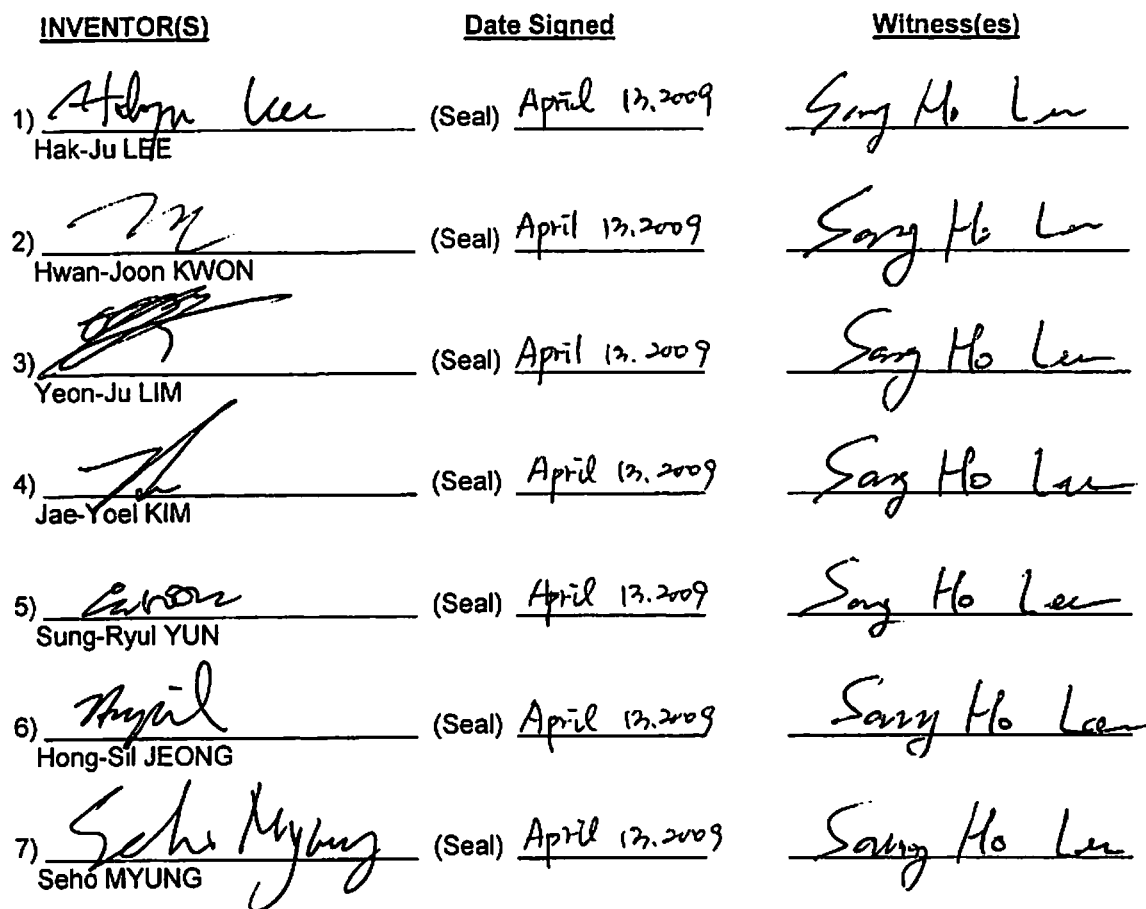 INVENTOR(S) Date Signed Witness(es)
1) (Seal) April 13.2009 Sang Ho Lee
Hak-Ju LEE
2) (Seal) April 13.2009 Sang Ho Lee
Hwan-Joon KWON
3) (Seal) April 13.2009 Sang Ho Lee
Yeon-Ju LIM
4) (Seal) April 13.2009 Sang Ho Lee
Jae-Yoel KIM
5) (Seal) April 13.2009 Sang Ho Lee
Sung-Ryul YUN
6) (Seal) April 13.2009 Sang Ho Lee
Hong-Sil JEONG
7) Seho Myung (Seal) April 13.2009 Sang Ho Lee
Seho MYUNG